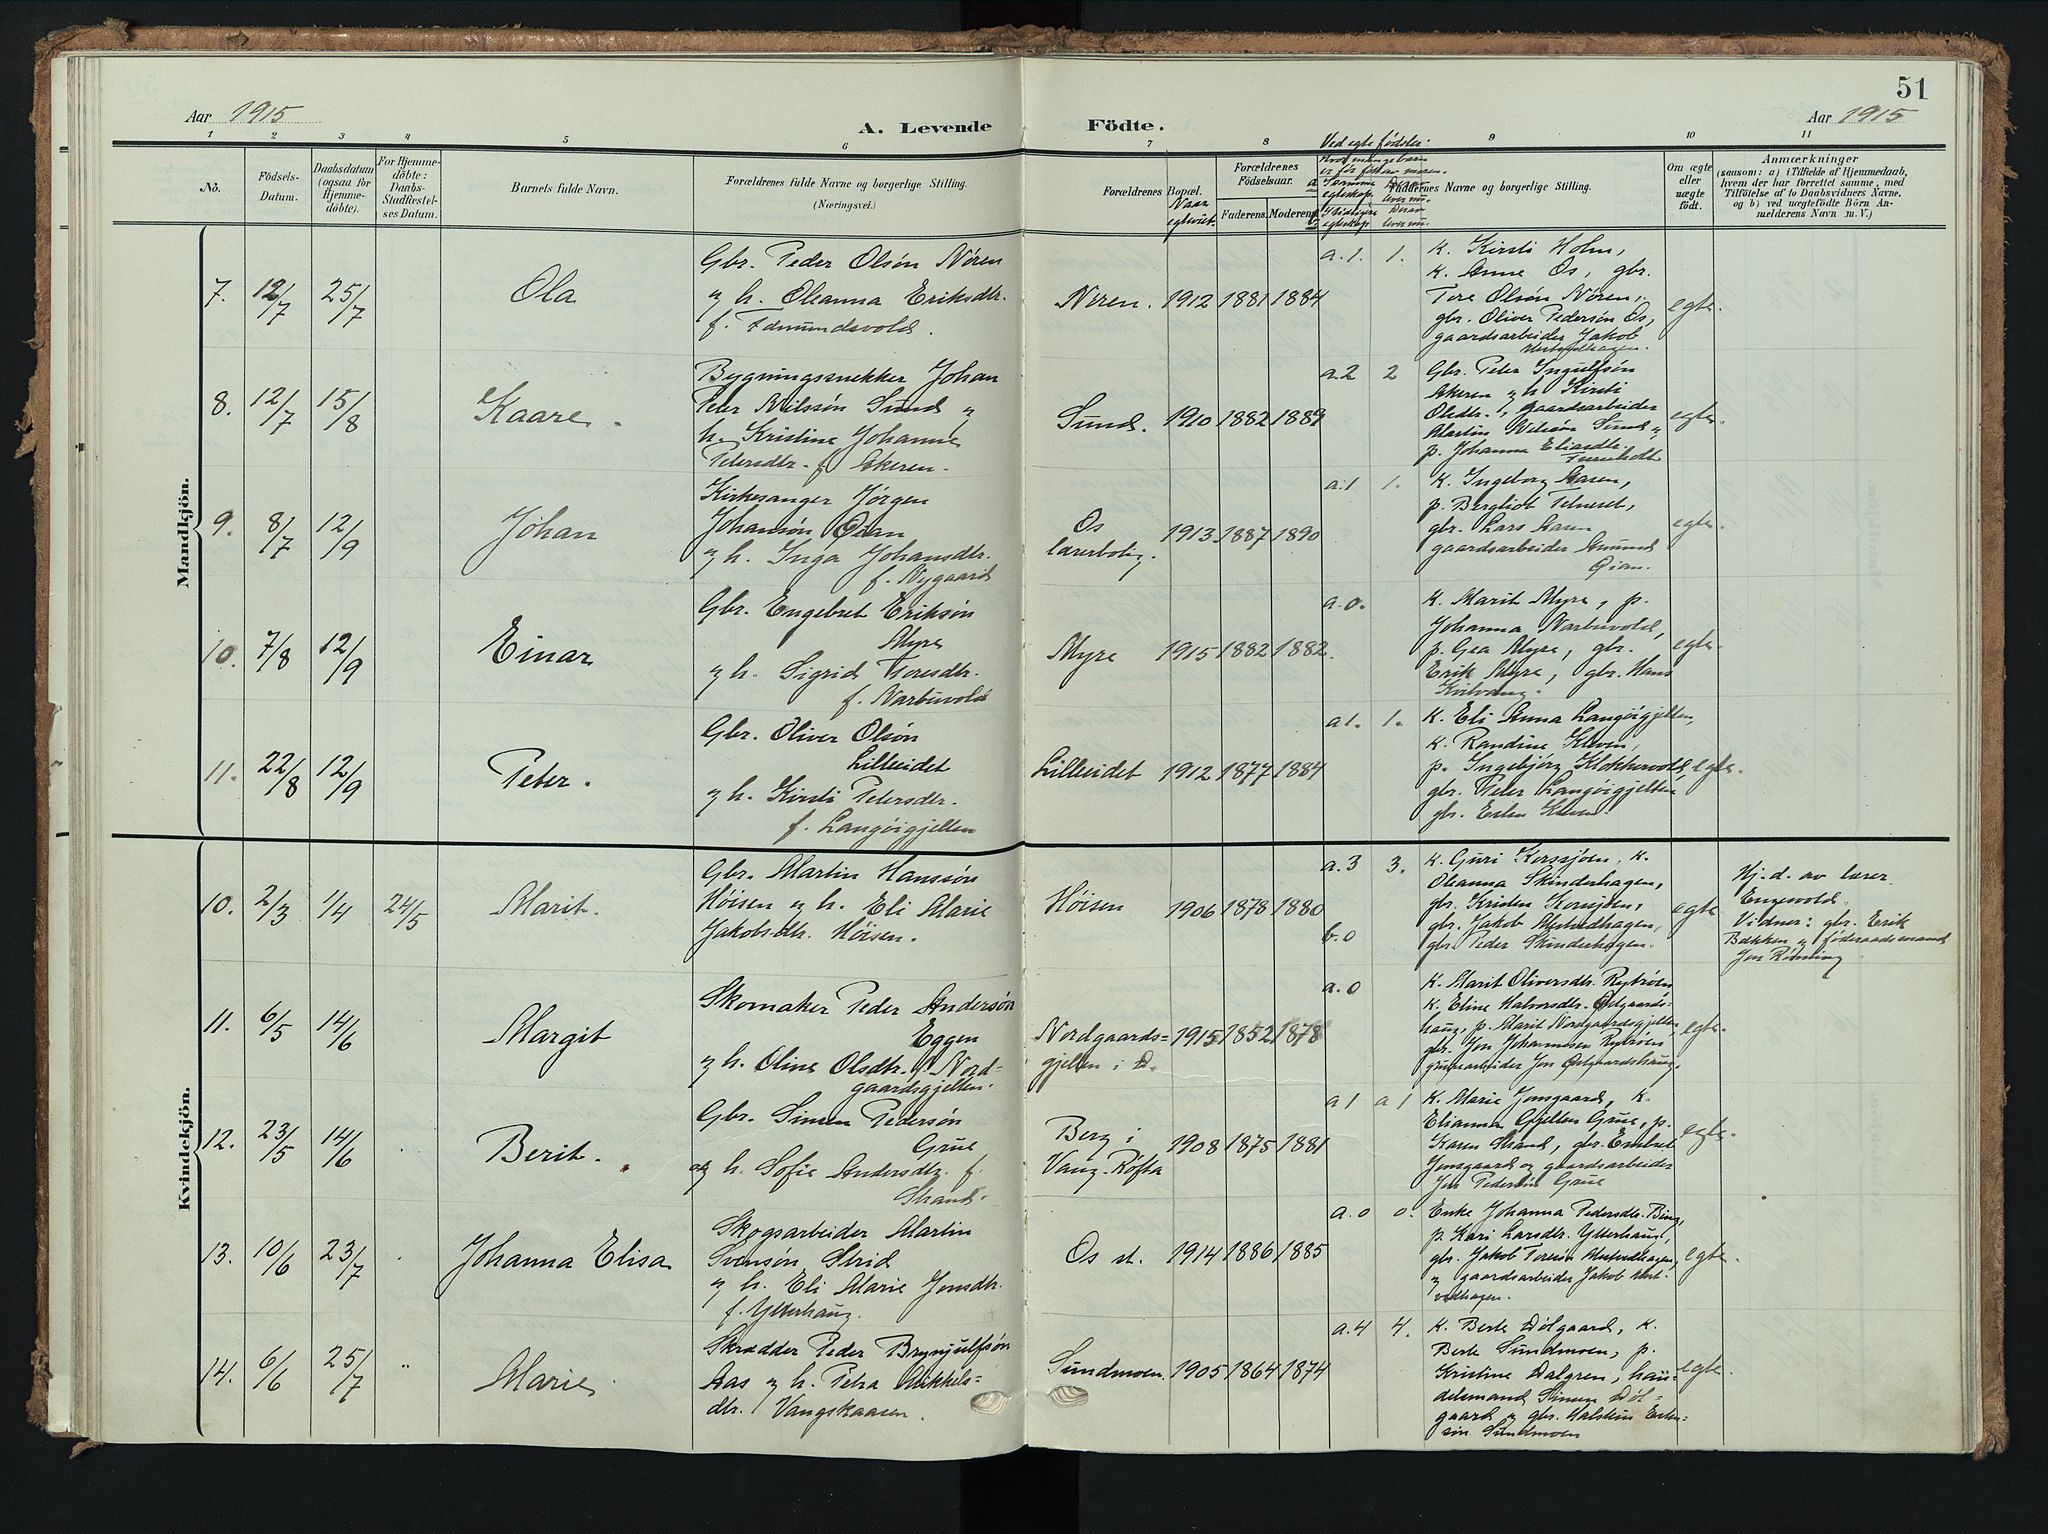 51
Aar 1915
A. Levende Födte.
Aar 1915
1 2 3 4 5 6 7 8 9 10 11
Ved egte fødsler:
No.
Födsels-
Datum.
Daabsdatum
(ogsaa for
Hjemme-
döbte).
For Hjemme-
döbte:
Daabs-
Stadfæstel-
ses Datum.
Barnets fulde Navn.
Forældrenes fulde Navne og borgerlige Stilling.
(Næringsvei.)
Forældrenes Bopæl.
Naar
egteviet.
Forældrenes
Födselsaar.
Faderens. Moderens.
Faddernes Navne og borgerlige Stilling.
Om ægte
eller
uægte
födt.
Anmærkninger
(saasom: a) i Tilfælde af Hjemmedaab,
hvem der har forrettet samme, med
Tilföielse af to Daabsvidners Navne.
og b) ved uægtefödte Börn An-
melderens Navn m. V.)
Mandkjön.
7. 12/7 25/7
Ola
Gbr. Peder Olsøn Nøren
og h. Oleanna Eriksdtr.
f. Edmundsvold.
Nøren. 1912 1881 1884
a.1. 1.
K. Kirsti Holm,
K. Anne Os, gbr.
Tore Olsøn Nøren,
gbr. Oliver Pedersøn Os,
gaardsarbeider Jakob
egte.
8. 12/7 15/8
Kaare.
Bygningssnekker Johan
Peter Nilssøn Sund og
h. Kristine Johanne
Petersdtr. f. Akeren.
Sund. 1910 1882 1889
a.2 2
Gbr. Peter Ingulfsøn
Akeren og h. Kirsti
Olsdtr., gaardsarbeider
Martin Nilsøn Sund og
p. Johanna Eliasdtr.
egte.
9. 8/7 12/9
Johan
Kirkesanger Jørgen
Johansøn Øian
og h. Inga Johansdtr.
f. Nygaard
Os
lærerbolig. 1913 1887 1890
a.1 1.
K. Ingeborg Aasen,
p. Bergliot Telneset,
gbr. Lars Aasen
gaardsarbeider Amund
Øian.
egte.
10. 7/8 12/9
Einar
Gbr. Engebret Eriksøn
Myre
og h. Sigrid Toresdtr.
f. Narbuvold
Myre 1915 1882 1882
a.0.
K. Marit Myre, p.
Johanna Narbuvold,
p. Gea Myre, gbr.
Erik Myre, gbr. Hans
egte.
11. 22/8 12/9
Peter.
Gbr. Oliver Olsøn
Lilleeidet
og h. Kirsti Petersdtr.
f. Langøigjelten
Lilleeidet 1912 1877 1884
a1. 1.
K. Eli Anna Langøigjelten,
K. Randine Kleven,
p. Ingebjørg Klokkervold,
gbr. Peter Langøigjelten
gbr. Esten Kleven.
egte.
Kvindekjön.
10. 2/3 1/4 24/5
Marit.
Gbr. Martin Hanssøn
Høisen og h. Eli Marie
Jakobsdtr. Høisen.
Høisen 1906 1878 1880
a.3 3.
b.0
K. Guri Korssjøen, K.
Oleanna Skinderhagen,
gbr. Kristen Korssjøen,
gbr. Jakob Mestvedhagen,
gbr. Peder Skinderhagen.
egte
Hj.d. av lærer
Engesvold.
Vidner: gbr. Erik
Bækken og føderaadsmand
Jon Rønning
11. 6/5 14/6
Margit
Skomaker Peder Andersøn
Eggen
og h. Oline Olsdtr. f. Nord-
gaardsgjelten.
Nordgaards-
gjelten i D. 1915 1852 1878
a.0
K. Marit Oliversdtr. Rytrøen
K. Eline Halvorsdtr. Østgaards-
haug, p. Marit Nordgaardsgjelten,
gbr. Jon Johannesen Rytrøen
grubearbeider Jon Østgaardshaug.
egte.
12. 23/5 14/6
Berit.
Gbr. Simen Pedersøn
Grue
og h. Sofie Andersdtr. f.
Strand.
Berg i
Vang-Røfta 1908 1875 1881
a1 a1
K. Marie Jonsgaard, K.
Elianna Gjelten Grue, p.
Karen Strand, gbr. Embret
Jonsgaard og gaardsarbeider
Jon Pedersøn Grue
egte.
13. 10/6 23/7
Johanna Elisa
Skogsarbeider Martin
Svensøn Strid
og h. Eli Marie Jonsdtr.
f. Ytterhaug.
Os st. 1914 1886 1885
a.0 0.
Enke Johanna Pedersdtr. Bing,
p. Kari Larsdtr. Ytterhaug,
gbr. Jakob Toresøn Mestvedhagen,
og gaardsarbeider Jakob Mest-
vedhagen.
egte.
14. 6/6 25/7 "
Marie
Skrædder Peder Brynjulfsøn
Aas og h. Petra Mikkels-
dtr. Vangskaasen.
Sundmoen. 1905 1864 1874
a.4 4.
K. Berte Dølgaard, K.
Berte Sundmoen, p.
Kristine Dalgren, han-
delsmand Simen Døl-
gaard og gbr. Halstein Esten-
søn Sundmoen
egte.